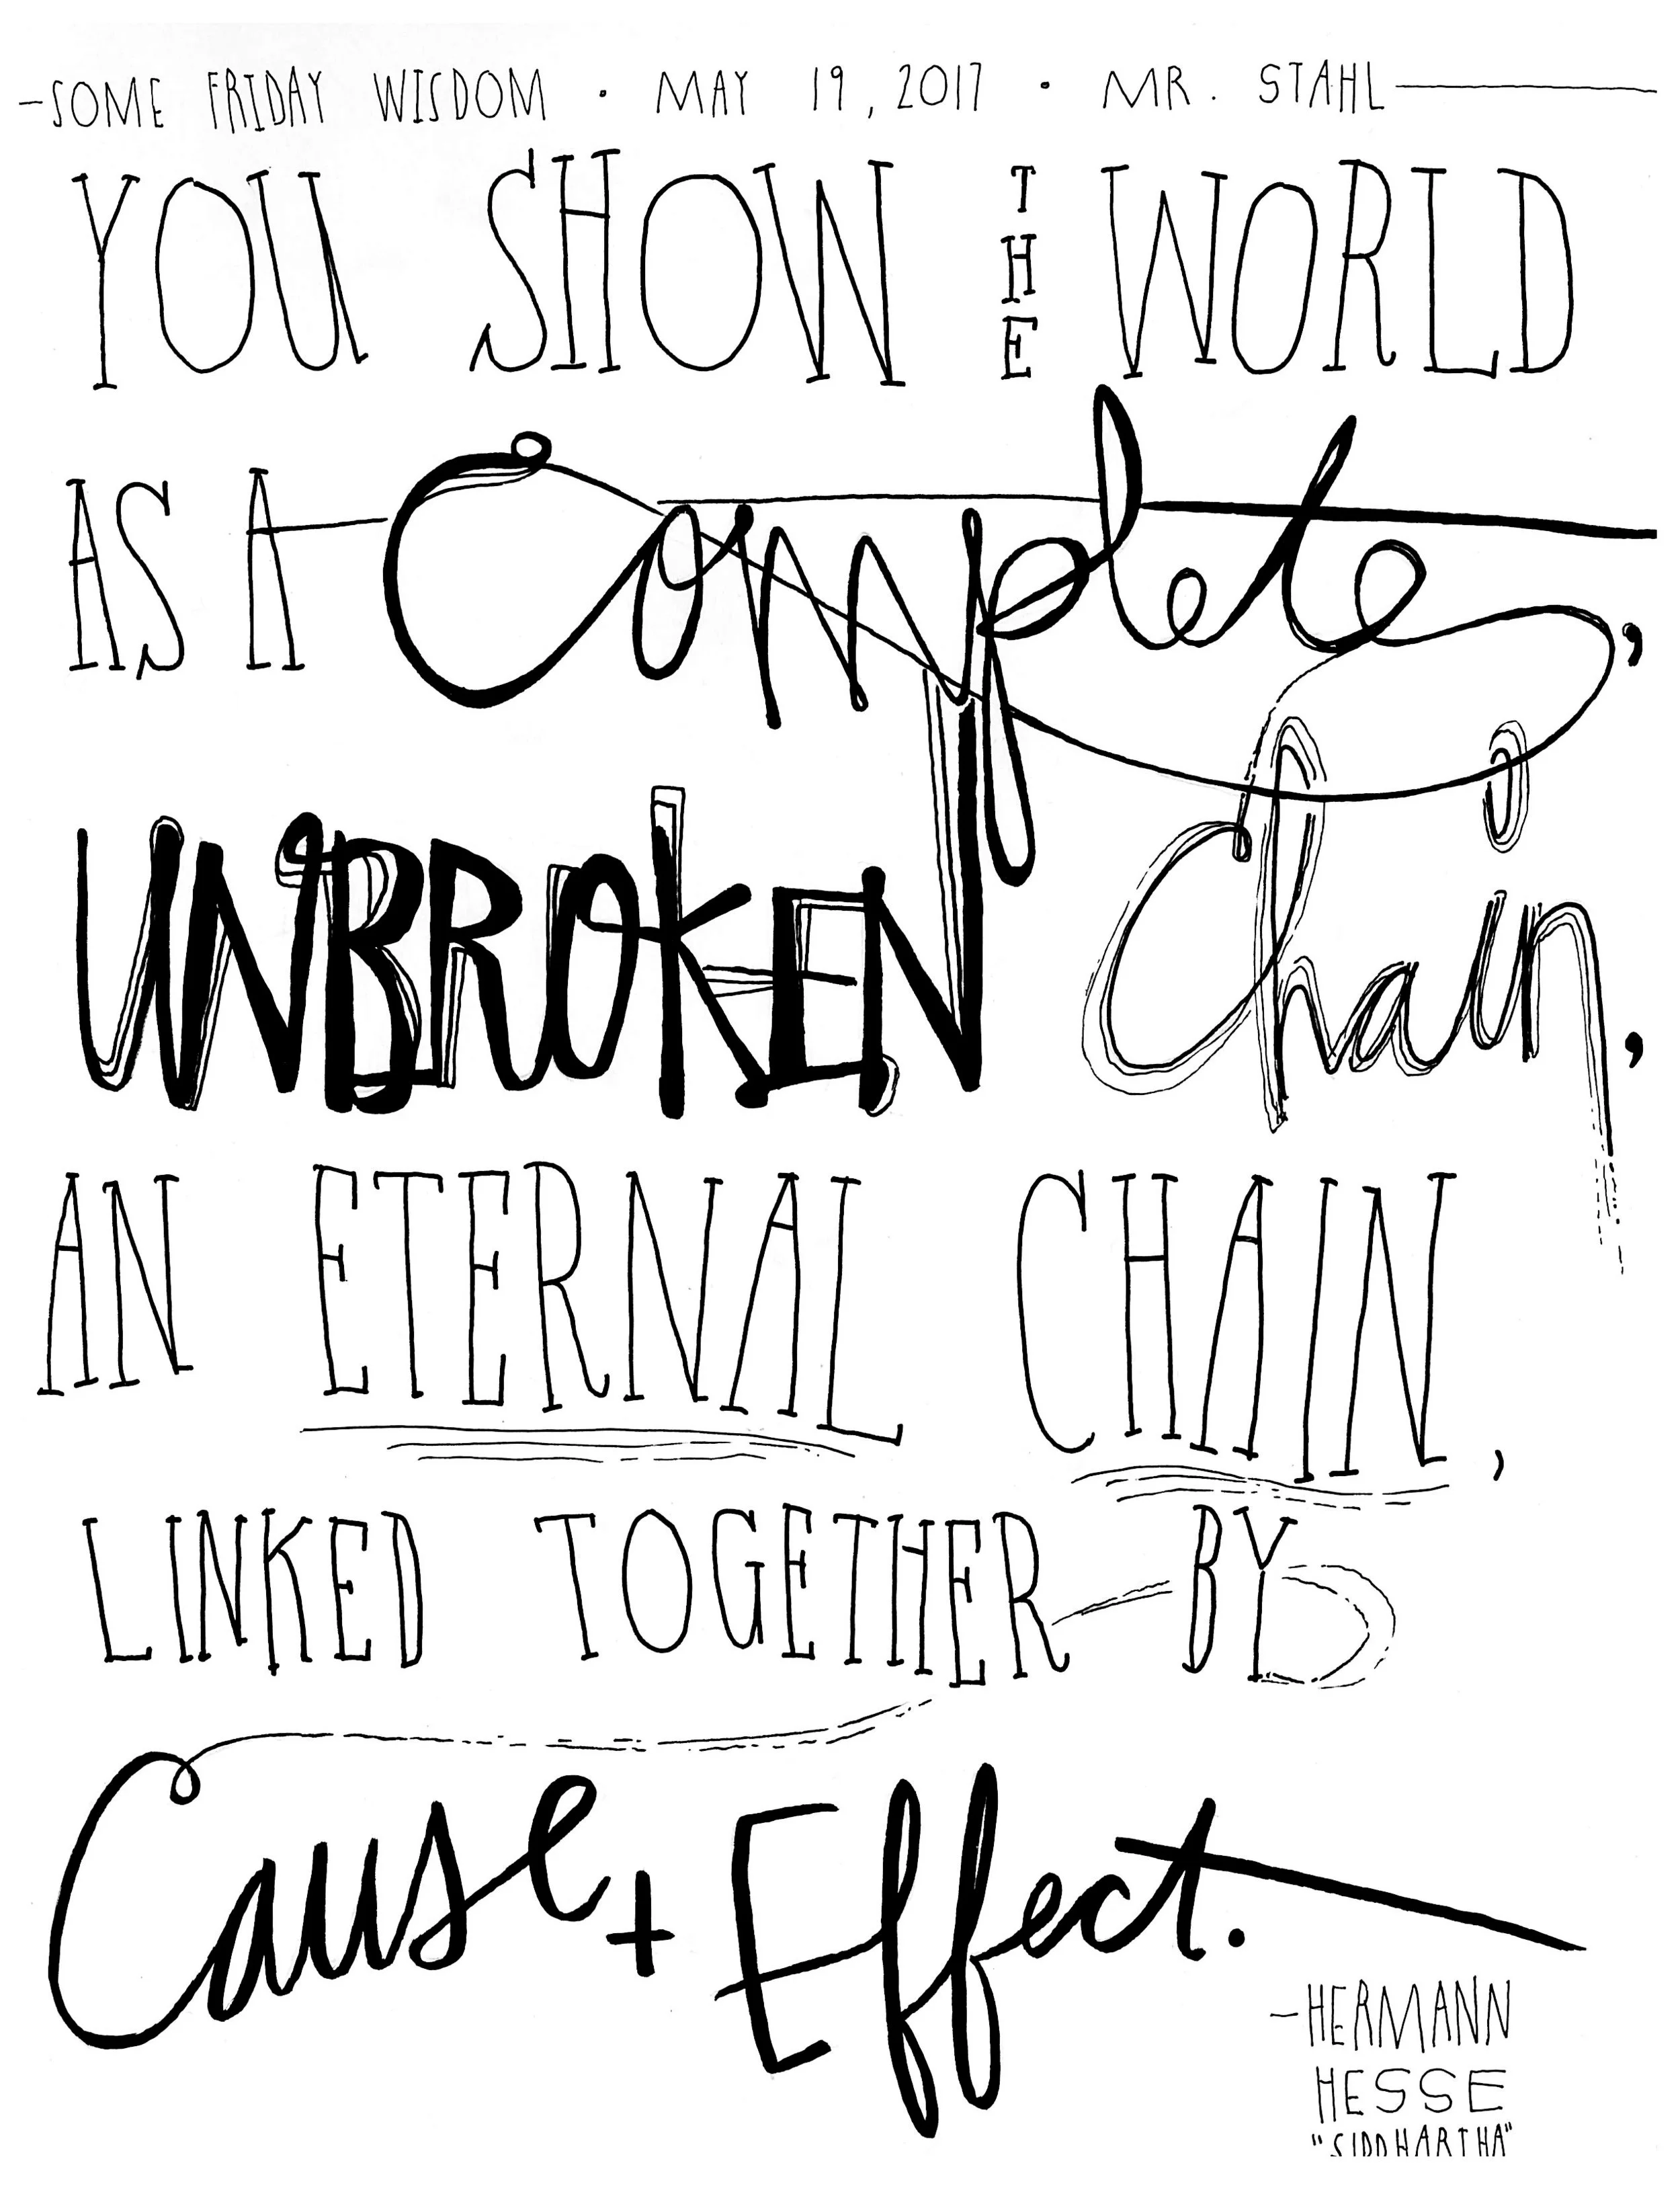 —SOME FRIDAY WISDOM • MAY 19, 2017 • MR. STAHL—
YOU SHOW THE WORLD
AS A Complete,
UNBROKEN Chain,
AN ETERNAL CHAIN,
LINKED TOGETHER BY
Cause + Effect.
—HERMANN
HESSE
"SIDDHARTHA"